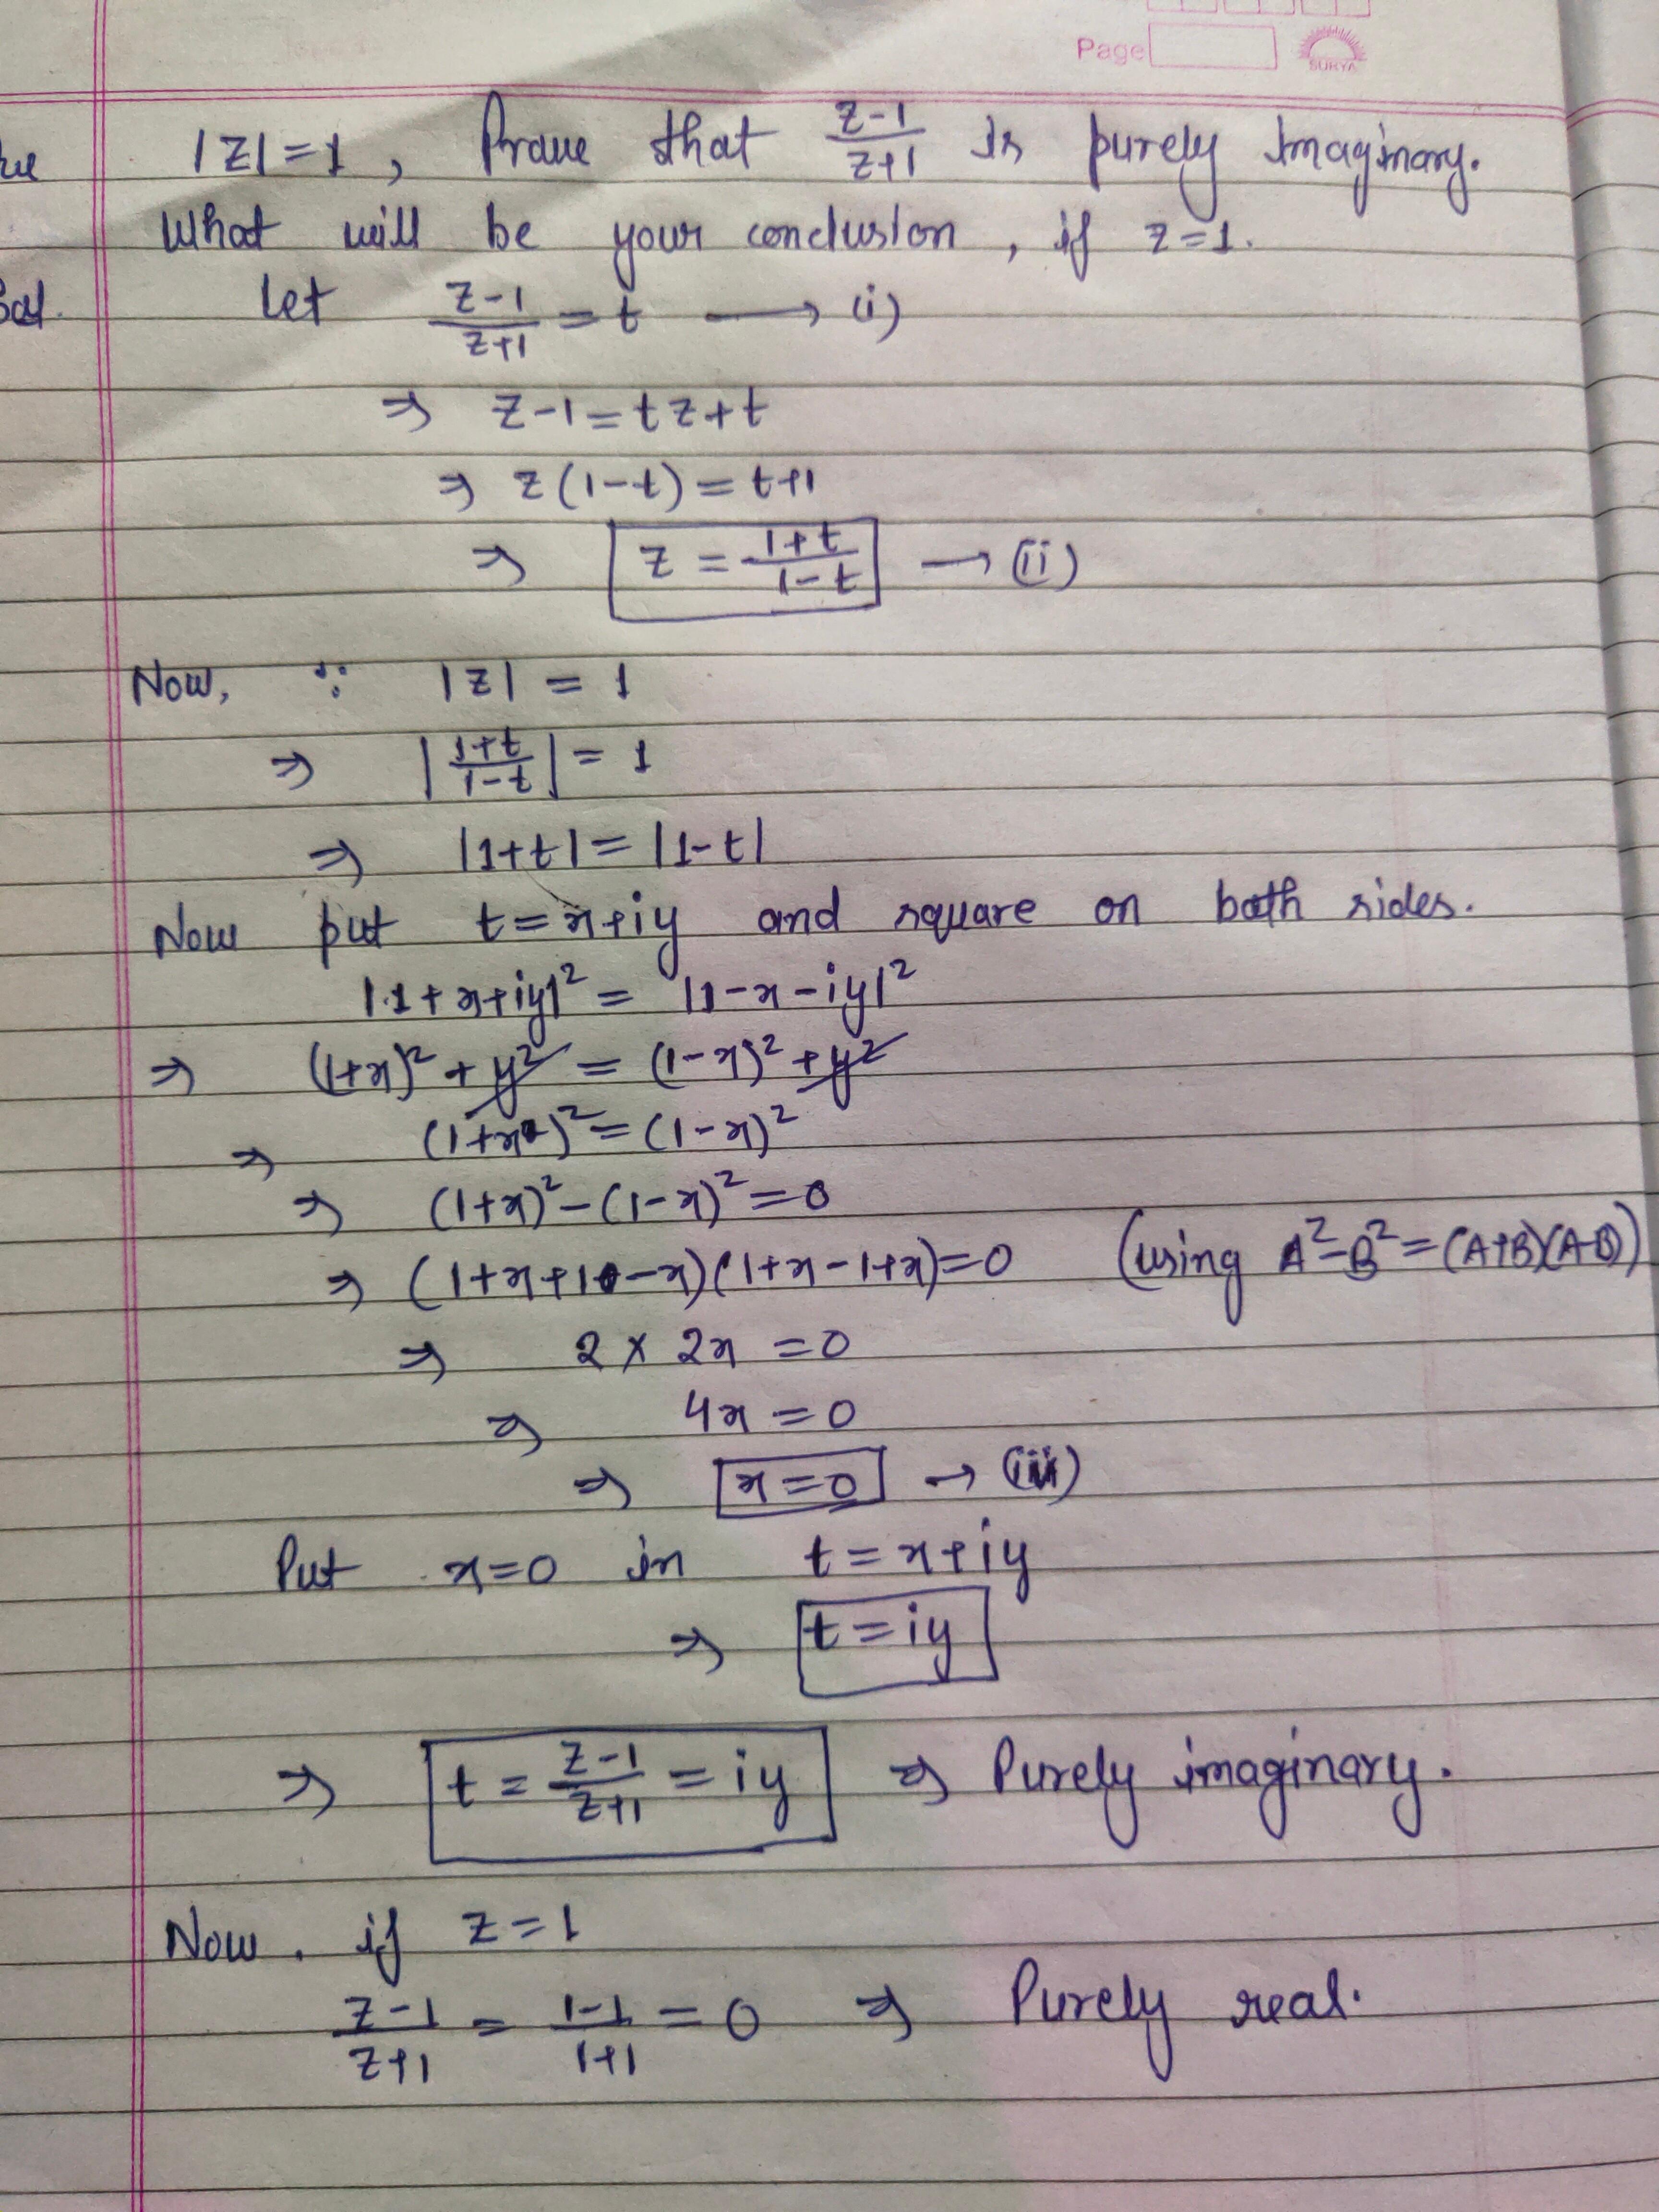 Page
SURYA
|z|=1, Prove that \frac{z-1}{z+1} is purely imaginary.
What will be your conclusion, if z=1.
Sol. Let \frac{z-1}{z+1} = t → (i)
⇒ z-1=tz+t
⇒ z(1-t)=t+1
⇒ z = \frac{1+t}{1-t} → (ii)
Now, ∵ |z| = 1
⇒ |\frac{1+t}{1-t}| = 1
⇒ |1+t| = |1-t|
Now put t=x+iy and square on both sides.
|1+x+iy|² = |1-x-iy|²
⇒ (1+x)² + y² = (1-x)² + y²
⇒ (1+x)² = (1-x)²
⇒ (1+x)² - (1-x)² = 0
⇒ (1+x+1-x)(1+x-1+x)=0 (using A²-B²=(A+B)(A-B))
⇒ 2 × 2x = 0
⇒ 4x = 0
⇒ x=0 → (iii)
Put x=0 in t=x+iy
⇒ t=iy
⇒ t = \frac{z-1}{z+1} = iy ⇒ Purely imaginary.
Now. if z=1
\frac{z-1}{z+1} = \frac{1-1}{1+1} = 0 ⇒ Purely real.